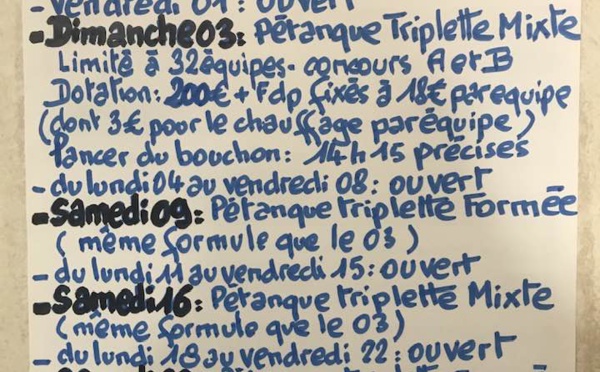 - Vendredi 01 : ouvert
- Dimanche 03 : Pétanque Triplette Mixte
Limité à 32 équipes - concours A et B
Dotation : 200€ + Fdp fixés à 18€ par equipe
(dont 3€ pour le chauffage par équipe)
Lancer du bouchon : 14h15 précises
- du lundi 04 au vendredi 08 : ouvert
- Samedi 09 : Pétanque triplette Formée
(même formule que le 03)
- du lundi 11 au vendredi 15 : ouvert
- Samedi 16 : Pétanque triplette Mixte
(même formule que le 03)
- du lundi 18 au vendredi 22 : ouvert